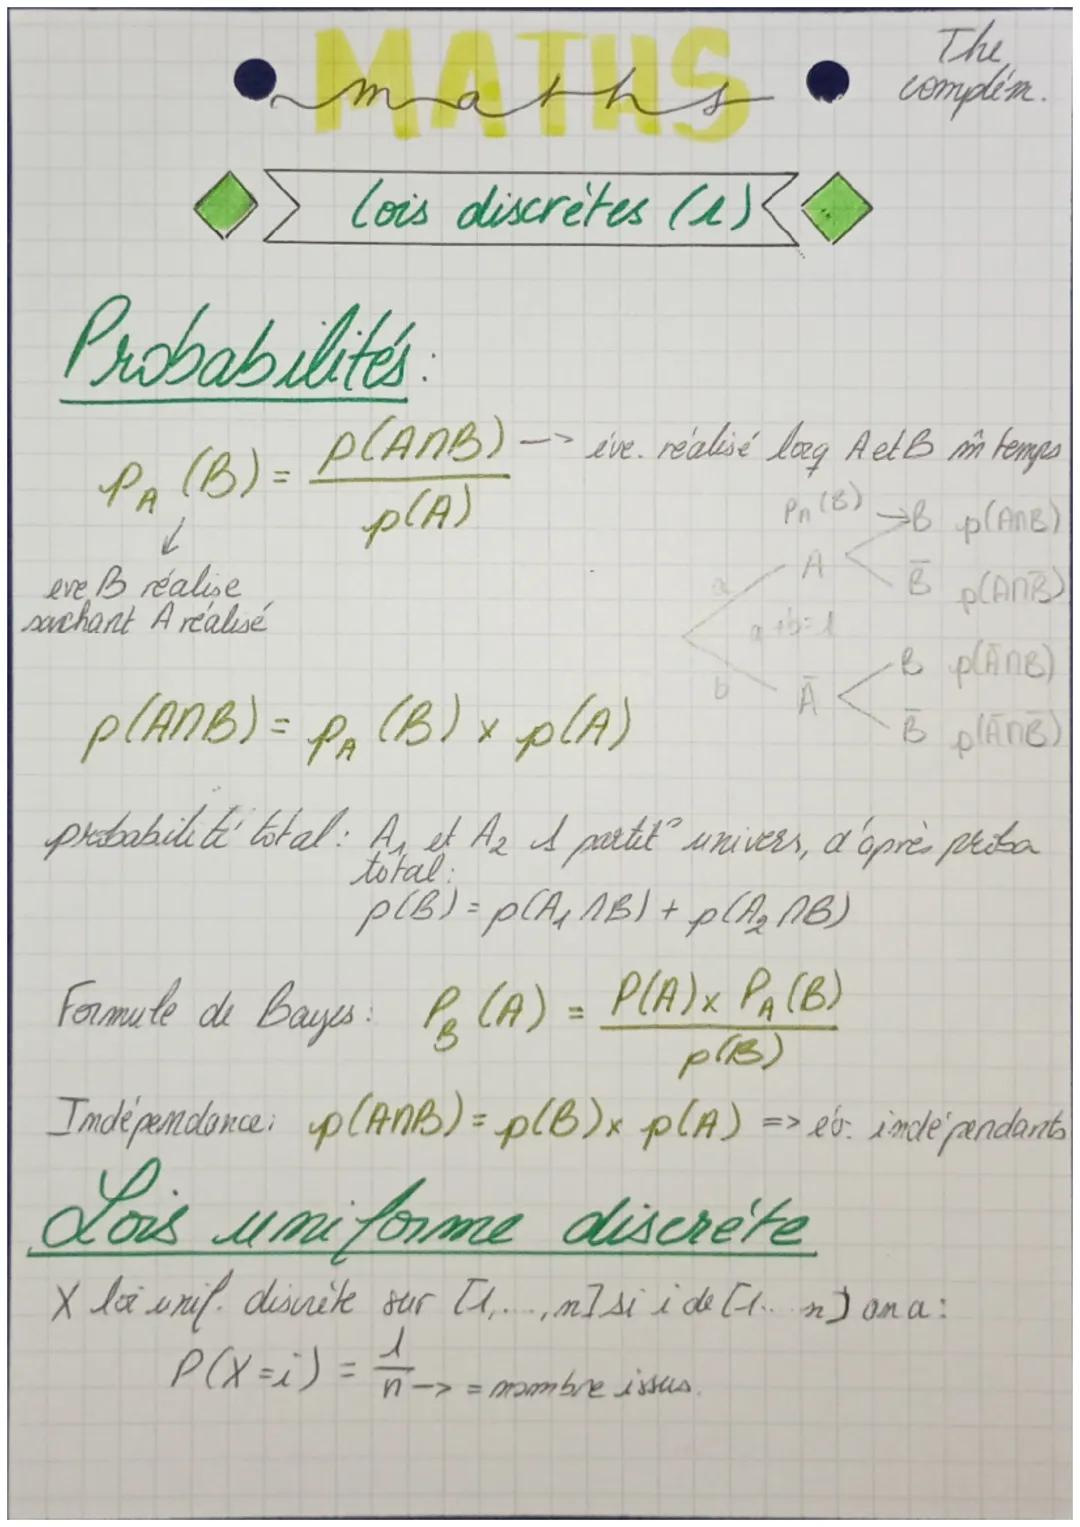 MATHS
maths
The
complém.
Lois discrètes (1)
Probabilités :
p_A (B) = p(A∩B) / p(A) --> éve. réalisé lorsq A et B m̂ temps
eve B réalise
sachant A réalisé
P_A(B) B p(A∩B)
A
B̄ p(A∩B̄)
a
a+b=1
b
B p(Ā∩B)
Ā
B̄ p(Ā∩B̄)
p(A∩B) = p_A (B) x p(A)
probabilité total : A₁ et A₂ 1 partit° univers, d'après proba
total :
p(B) = p(A₁∩B) + p(A₂∩B)
Formule de Bayes : P_B (A) = P(A) x P_A (B) / p(B)
Indépendance : p(A∩B) = p(B) x p(A) => év. indépendants
Lois uniforme discrète
X loi unif. discrète sur [1,...,n] si i de [1...n] on a :
P(X=i) = 1/n --> = nombre issus.